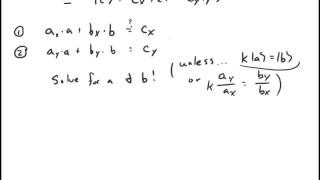 ① aₓ·a + bᵧ·b ≟ cₓ
② aᵧ·a + bᵧ·b = cᵧ
Solve for a & b! (unless... k|a⟩=|b⟩
or k aᵧ/aₓ = bᵧ/bₓ)